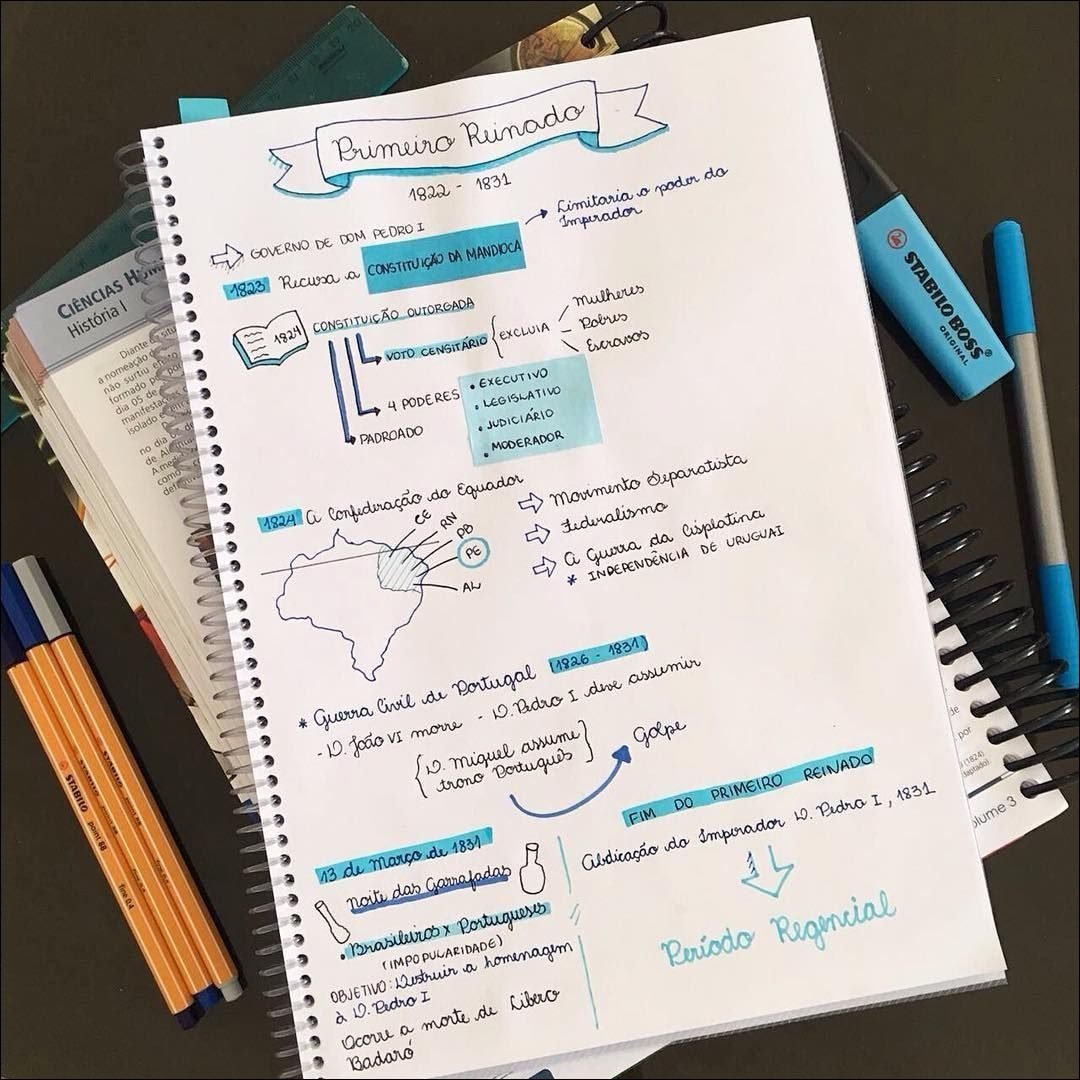 Primeiro Reinado
1822 - 1831
GOVERNO DE DOM PEDRO I
1823 Recusa a CONSTITUIÇÃO DA MANDIOCA
Limitaria o poder do
Imperador
1824
CONSTITUIÇÃO OUTORGADA
VOTO CENSITÁRIO { EXCLUIA
Mulheres
Pobres
Escravos
4 PODERES
• EXECUTIVO
• LEGISLATIVO
• JUDICIÁRIO
• MODERADOR
PADROADO
1824 A Confederação do Equador
CE
RN
PB
PE
AL
Movimento Separatista
Federalismo
A Guerra da Cisplatina
* INDEPENDÊNCIA DE URUGUAI
* Guerra Civil de Portugal (1826 - 1831)
- D. João VI morre - D. Pedro I deve assumir
{ D. Miguel assume }
{ trono Português }
Golpe
13 de Março de 1831
noite das Garrafadas
• Brasileiros x Portugueses
(IMPOPULARIDADE)
OBJETIVO: Destruir a homenagem
à D. Pedro I
Ocorre a morte de Líbero
Badaró
FIM DO PRIMEIRO REINADO
Abdicação do Imperador D. Pedro I, 1831
Período Regencial
CIÊNCIAS HUM
História I
Diante
a nomeação d
não surtiu efe
formado po
dia 05 de
manifesta
isolado e
no dia
de Al
A med
como
def
STABILO BOSS
ORIGINAL
STABILO point 88 fine 0.4
de
por
(1824)
daptado)
olume 3